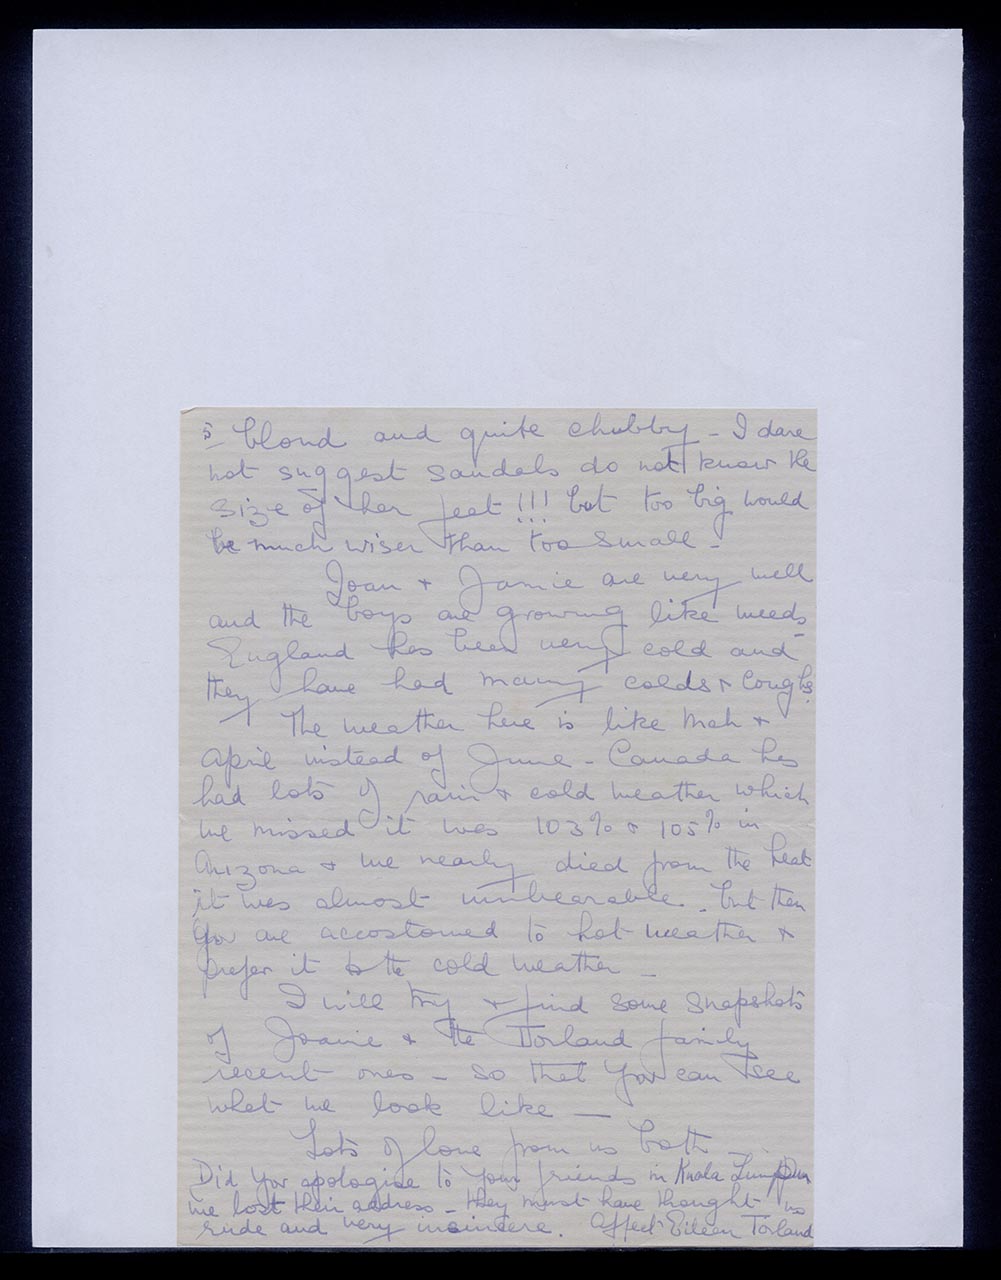 5 blond and quite chubby - I dare
not suggest sandals do not know the
size of her feet!!! but too big would
be much wiser than too small -
Joan + Jamie are very well
and the boys are growing like weeds
England has been very cold and
they have had many colds + coughs.
The weather here is like Mch +
April instead of June - Canada has
had lots of rain + cold weather which
we missed it was 103% + 105% in
Arizona + we nearly died from the heat
it was almost unbearable. but then
you are accostomed to hot weather +
prefer it to the cold weather -
I will try + find some snapshots
of Joanie + the Torland family
recent ones - so that you can see
what we look like -
Lots of love from us both -
Did you apologise to your friends in Kuala Lumpur
we lost their address - they must have thought us
rude and very insincere. Affect Eileen Torland